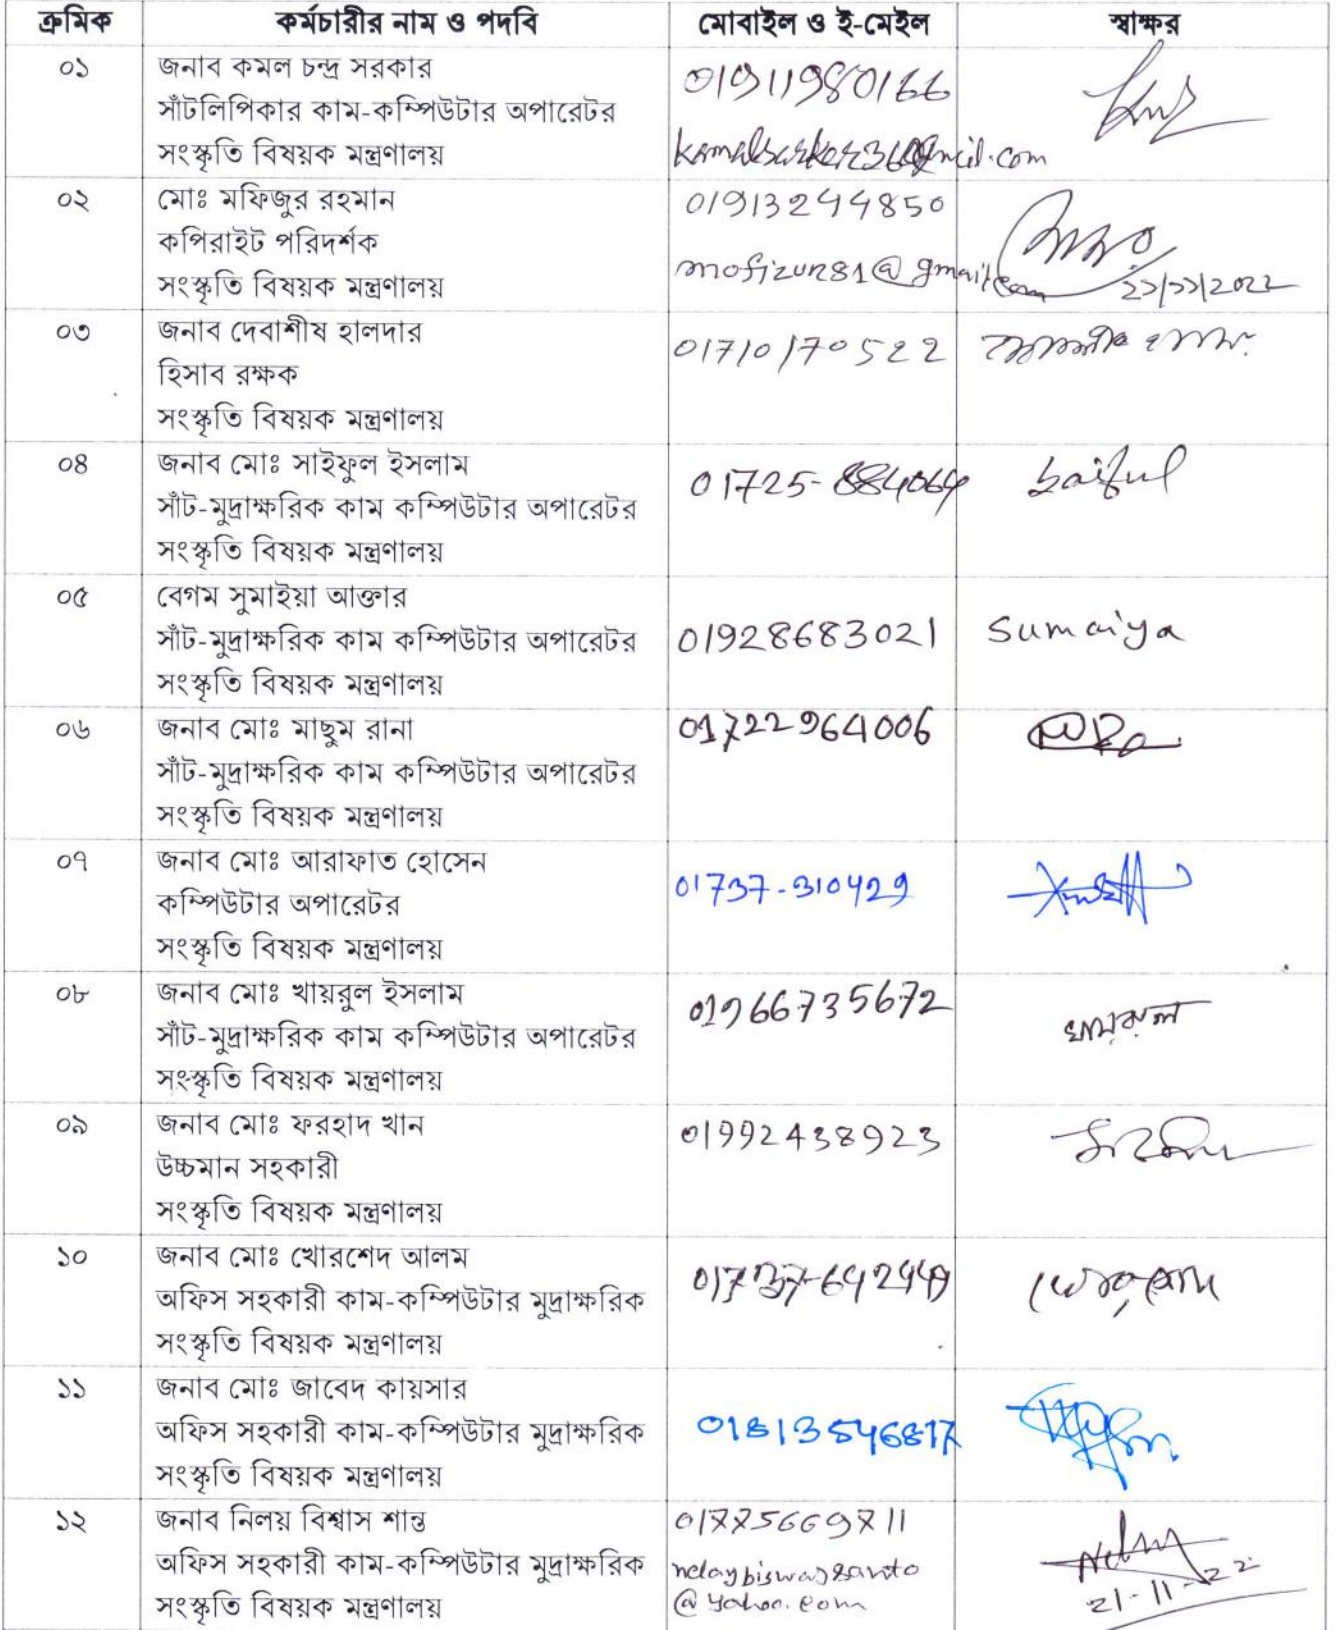 ক্রমিক কর্মচারীর নাম ও পদবি মোবাইল ও ই-মেইল স্বাক্ষর
০১ জনাব কমল চন্দ্র সরকার
সাঁটলিপিকার কাম-কম্পিউটার অপারেটর
সংস্কৃতি বিষয়ক মন্ত্রণালয়
01911980166
০২ মোঃ মফিজুর রহমান
কপিরাইট পরিদর্শক
সংস্কৃতি বিষয়ক মন্ত্রণালয়
01913244850
mofizur81@gmail.com
২১/১১/2022
০৩ জনাব দেবাশীষ হালদার
হিসাব রক্ষক
সংস্কৃতি বিষয়ক মন্ত্রণালয়
01710170522
০৪ জনাব মোঃ সাইফুল ইসলাম
সাঁট-মুদ্রাক্ষরিক কাম কম্পিউটার অপারেটর
সংস্কৃতি বিষয়ক মন্ত্রণালয়
01725-884064 Saiful
০৫ বেগম সুমাইয়া আক্তার
সাঁট-মুদ্রাক্ষরিক কাম কম্পিউটার অপারেটর
সংস্কৃতি বিষয়ক মন্ত্রণালয়
01928683021 Sumaiya
০৬ জনাব মোঃ মাছুম রানা
সাঁট-মুদ্রাক্ষরিক কাম কম্পিউটার অপারেটর
সংস্কৃতি বিষয়ক মন্ত্রণালয়
01722964006
০৭ জনাব মোঃ আরাফাত হোসেন
কম্পিউটার অপারেটর
সংস্কৃতি বিষয়ক মন্ত্রণালয়
01737-310429
০৮ জনাব মোঃ খায়রুল ইসলাম
সাঁট-মুদ্রাক্ষরিক কাম কম্পিউটার অপারেটর
সংস্কৃতি বিষয়ক মন্ত্রণালয়
01966735672 খায়রুল
০৯ জনাব মোঃ ফরহাদ খান
উচ্চমান সহকারী
সংস্কৃতি বিষয়ক মন্ত্রণালয়
01992438923
১০ জনাব মোঃ খোরশেদ আলম
অফিস সহকারী কাম-কম্পিউটার মুদ্রাক্ষরিক
সংস্কৃতি বিষয়ক মন্ত্রণালয়
১১ জনাব মোঃ জাবেদ কায়সার
অফিস সহকারী কাম-কম্পিউটার মুদ্রাক্ষরিক
সংস্কৃতি বিষয়ক মন্ত্রণালয়
01813546817
১২ জনাব নিলয় বিশ্বাস শান্ত
অফিস সহকারী কাম-কম্পিউটার মুদ্রাক্ষরিক
সংস্কৃতি বিষয়ক মন্ত্রণালয়
01775669711
nelaybiswassanto
@yahoo.com
21-11-22